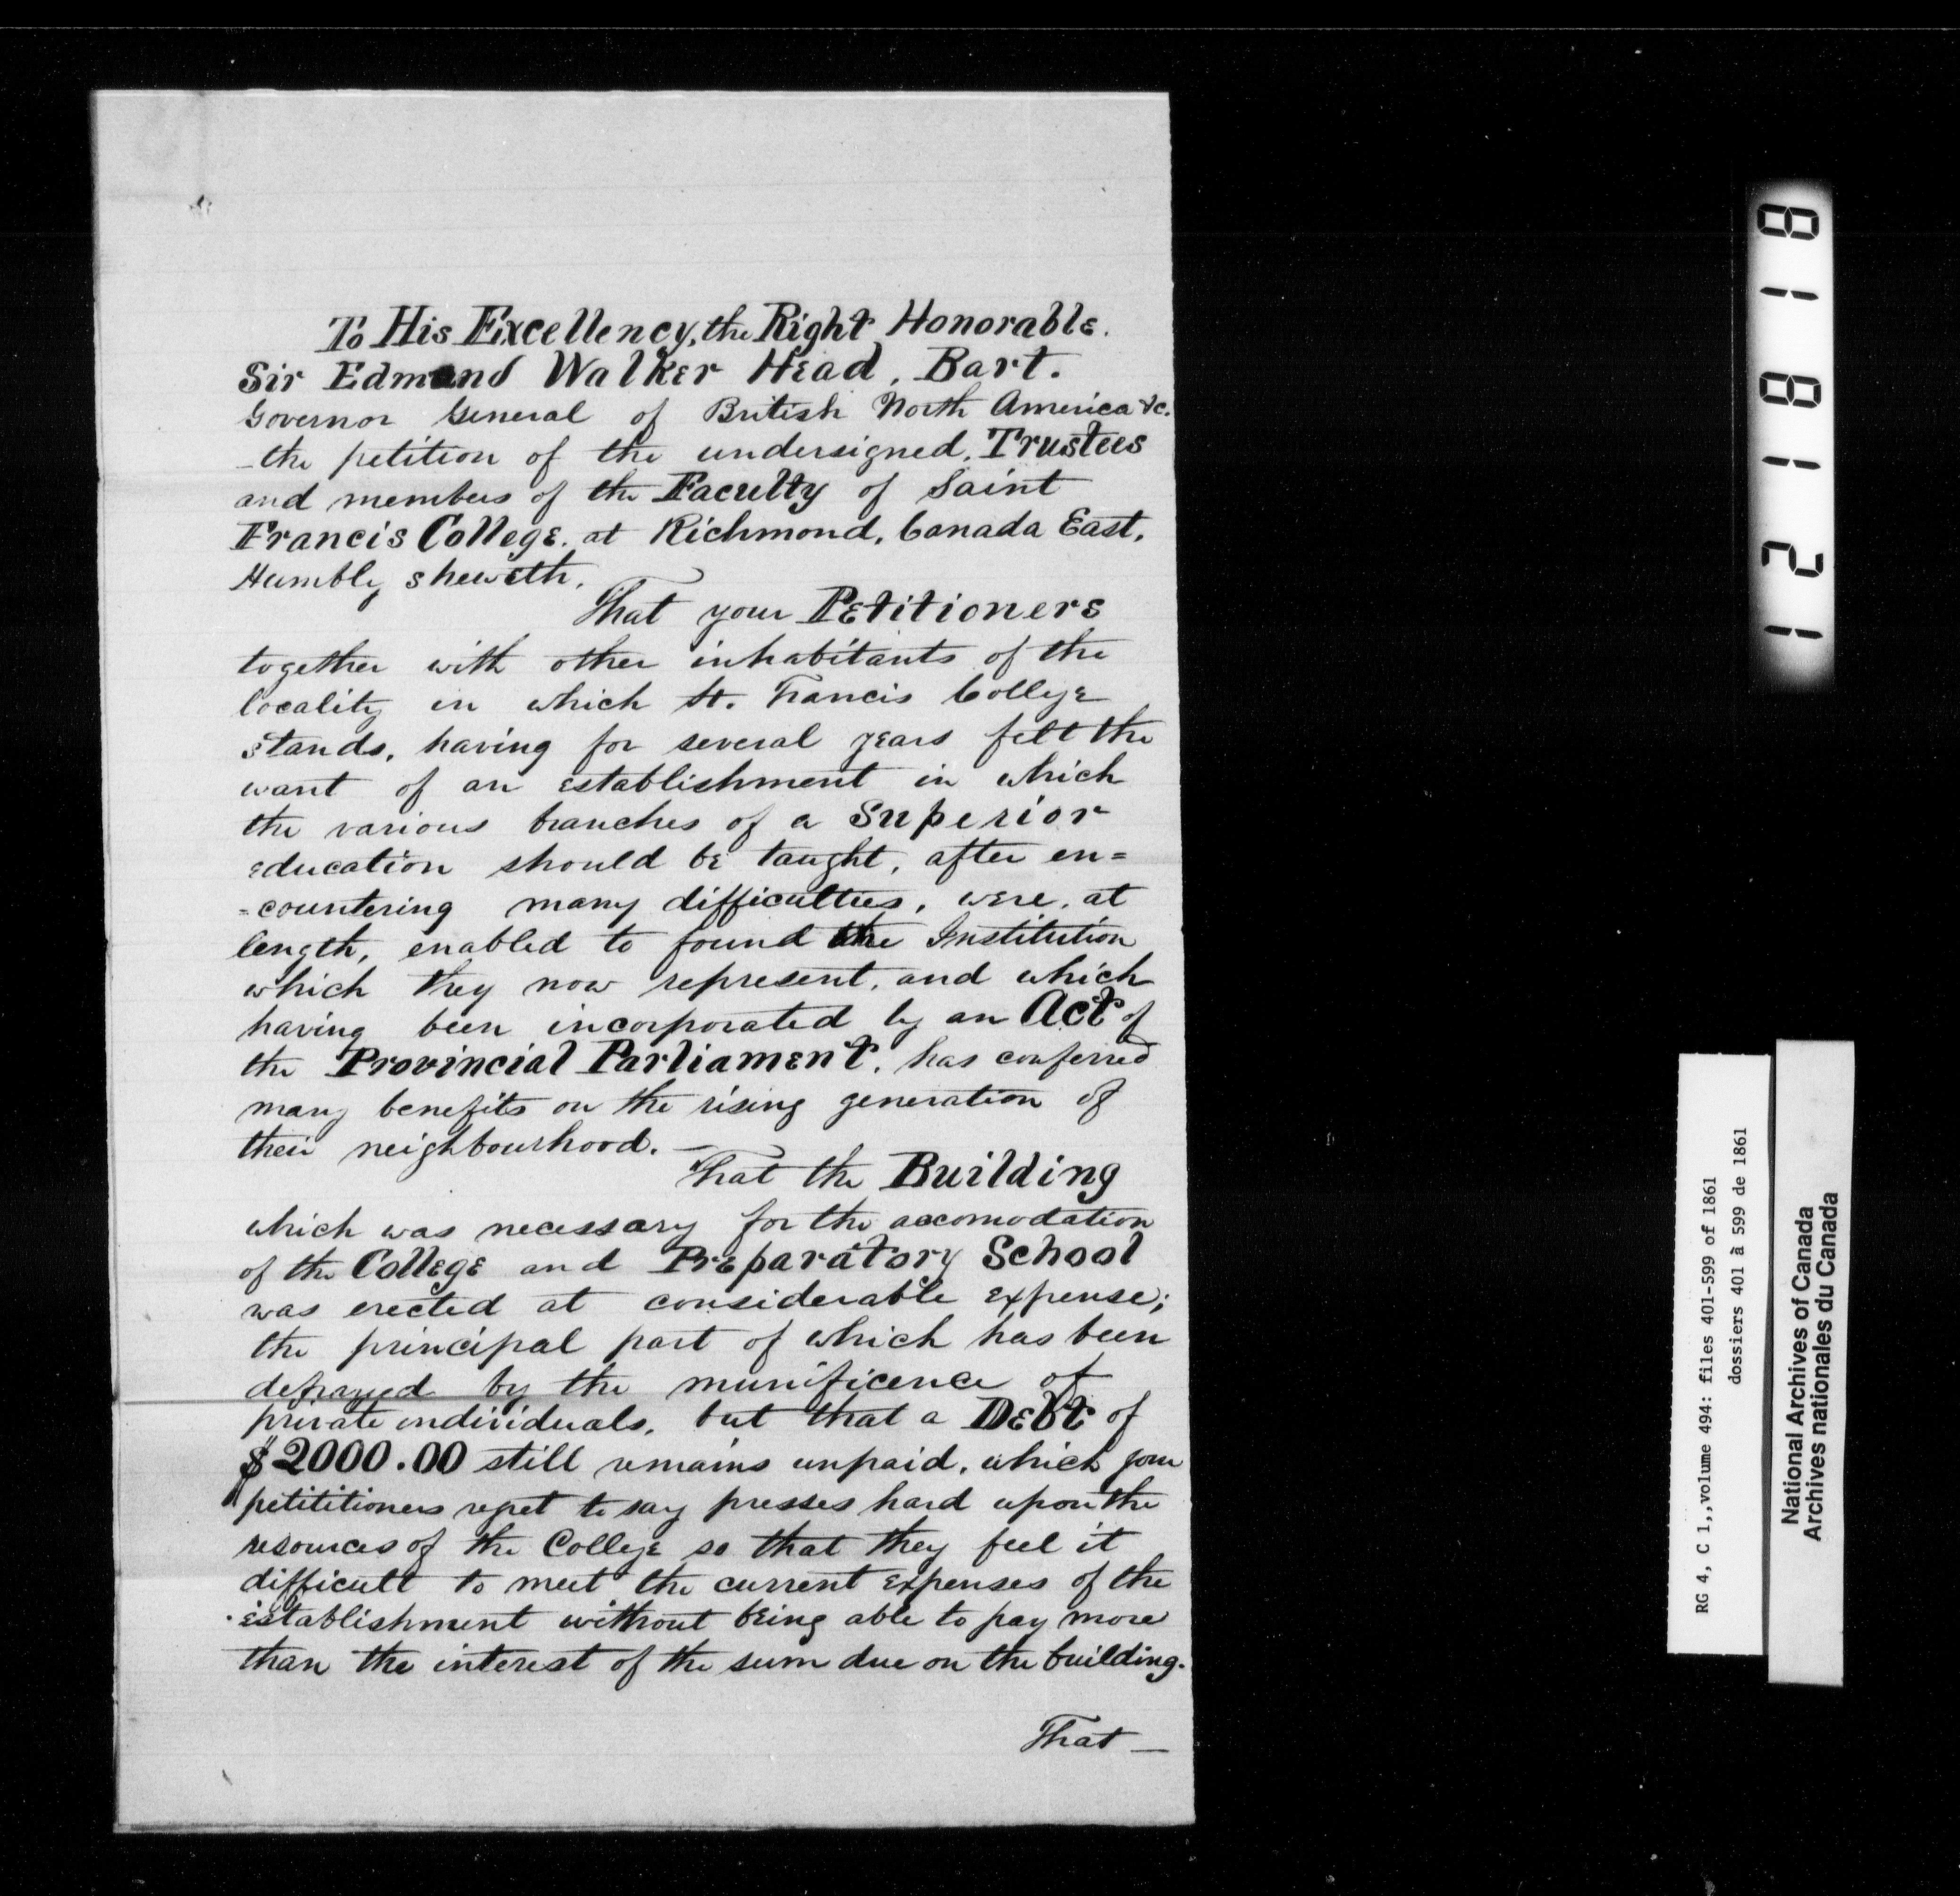 To His Excellency, the Right Honorable.
Sir Edmund Walker Head, Bart.
Governor General of British North America &c.
– the petition of the undersigned, Trustees
and members of the Faculty of Saint
Francis College, at Richmond, Canada East,
Humbly sheweth,
That your Petitioners
together with other inhabitants of the
locality in which St. Francis College
stands, having for several years felt the
want of an establishment in which
the various branches of a Superior
education should be taught, after en=
=countering many difficulties, were, at
length, enabled to found the Institution
which they now represent, and which
having been incorporated by an Act of
the Provincial Parliament, has conferred
many benefits on the rising generation of
their neighbourhood. —
That the Building
which was necessary for the accomodation
of the College and Preparatory School
was erected at considerable expense;
the principal part of which has been
defrayed by the munificence of
private individuals, but that a Debt of
$2000.00 still remains unpaid, which your
petititioners regret to say presses hard upon the
resources of the College so that they feel it
difficult to meet the current expenses of the
establishment without being able to pay more
than the interest of the sum due on the building.
That —
121818
RG 4, C 1,,volume 494: files 401-599 of 1861
dossiers 401 à 599 de 1861
National Archives of Canada
Archives nationales du Canada